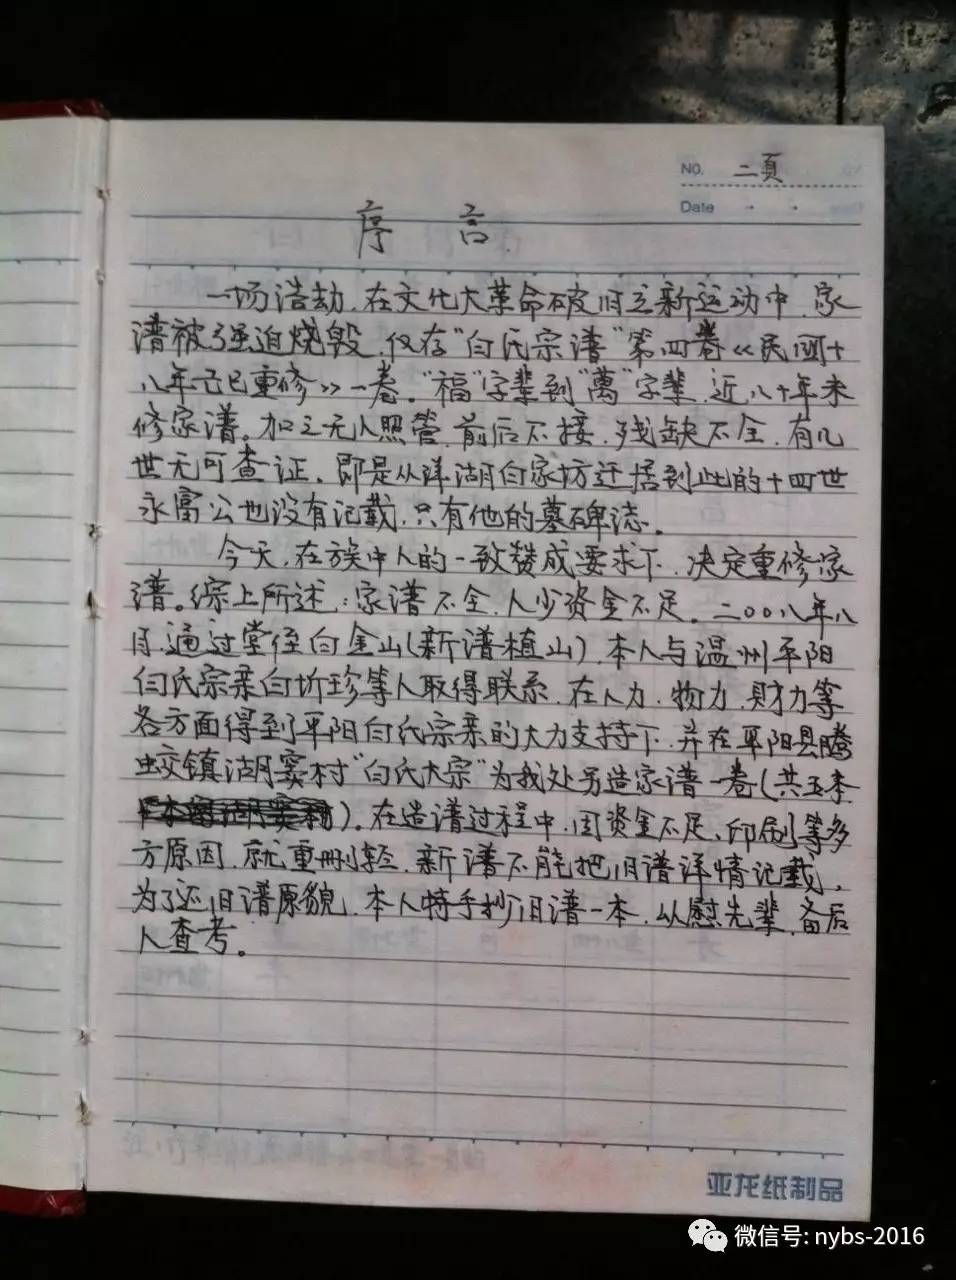 NO. 二頁
Date
序 言
一场浩劫，在文化大革命破旧立新运动中，家
谱被强迫烧毁，仅存“白氏宗谱”第四卷《民国十
八年己巳重修》一卷。“福”字辈到“萬”字辈，近八十年未
修家谱。加之无人照管，前后不接，残缺不全，有几
世无可查证，即是从洋湖白家坊迁居到此的十四世
永富公也没有记载，只有他的墓碑誌。
今天，在族中人的一致赞成要求下，决定重修家
谱。综上所述：家谱不全，人少资金不足。二00八年八
月，通过堂侄白金山(新谱植山)，本人与温州平阳
白氏宗亲白圻珍等人取得联系，在人力、物力、财力等
各方面得到平阳白氏宗亲的大力支持下，并在平阳县腾
蛟镇湖窦村“白氏大宗”为我处另造家谱一卷(共五本
)。在造谱过程中，因资金不足、印刷等多
方原因，就重删轻，新谱不能把旧谱详情记载，
为了还旧谱原貌，本人特手抄旧谱一本，以慰先辈，备后
人查考。
亚龙纸制品
微信号: nybs-2016